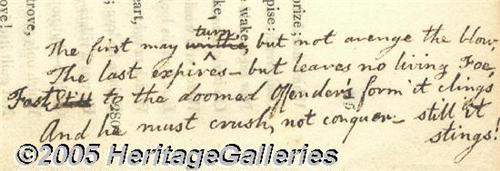 The first may writhe, turn, but not avenge the blow
The last expires – but leaves no living Foe,
Fast Still to the doomed Offender's form it clings
And he must crush, not conquer – still it
stings!
rove,
ove!
art,
wake,
pise:
rize;
©2005 HeritageGalleries